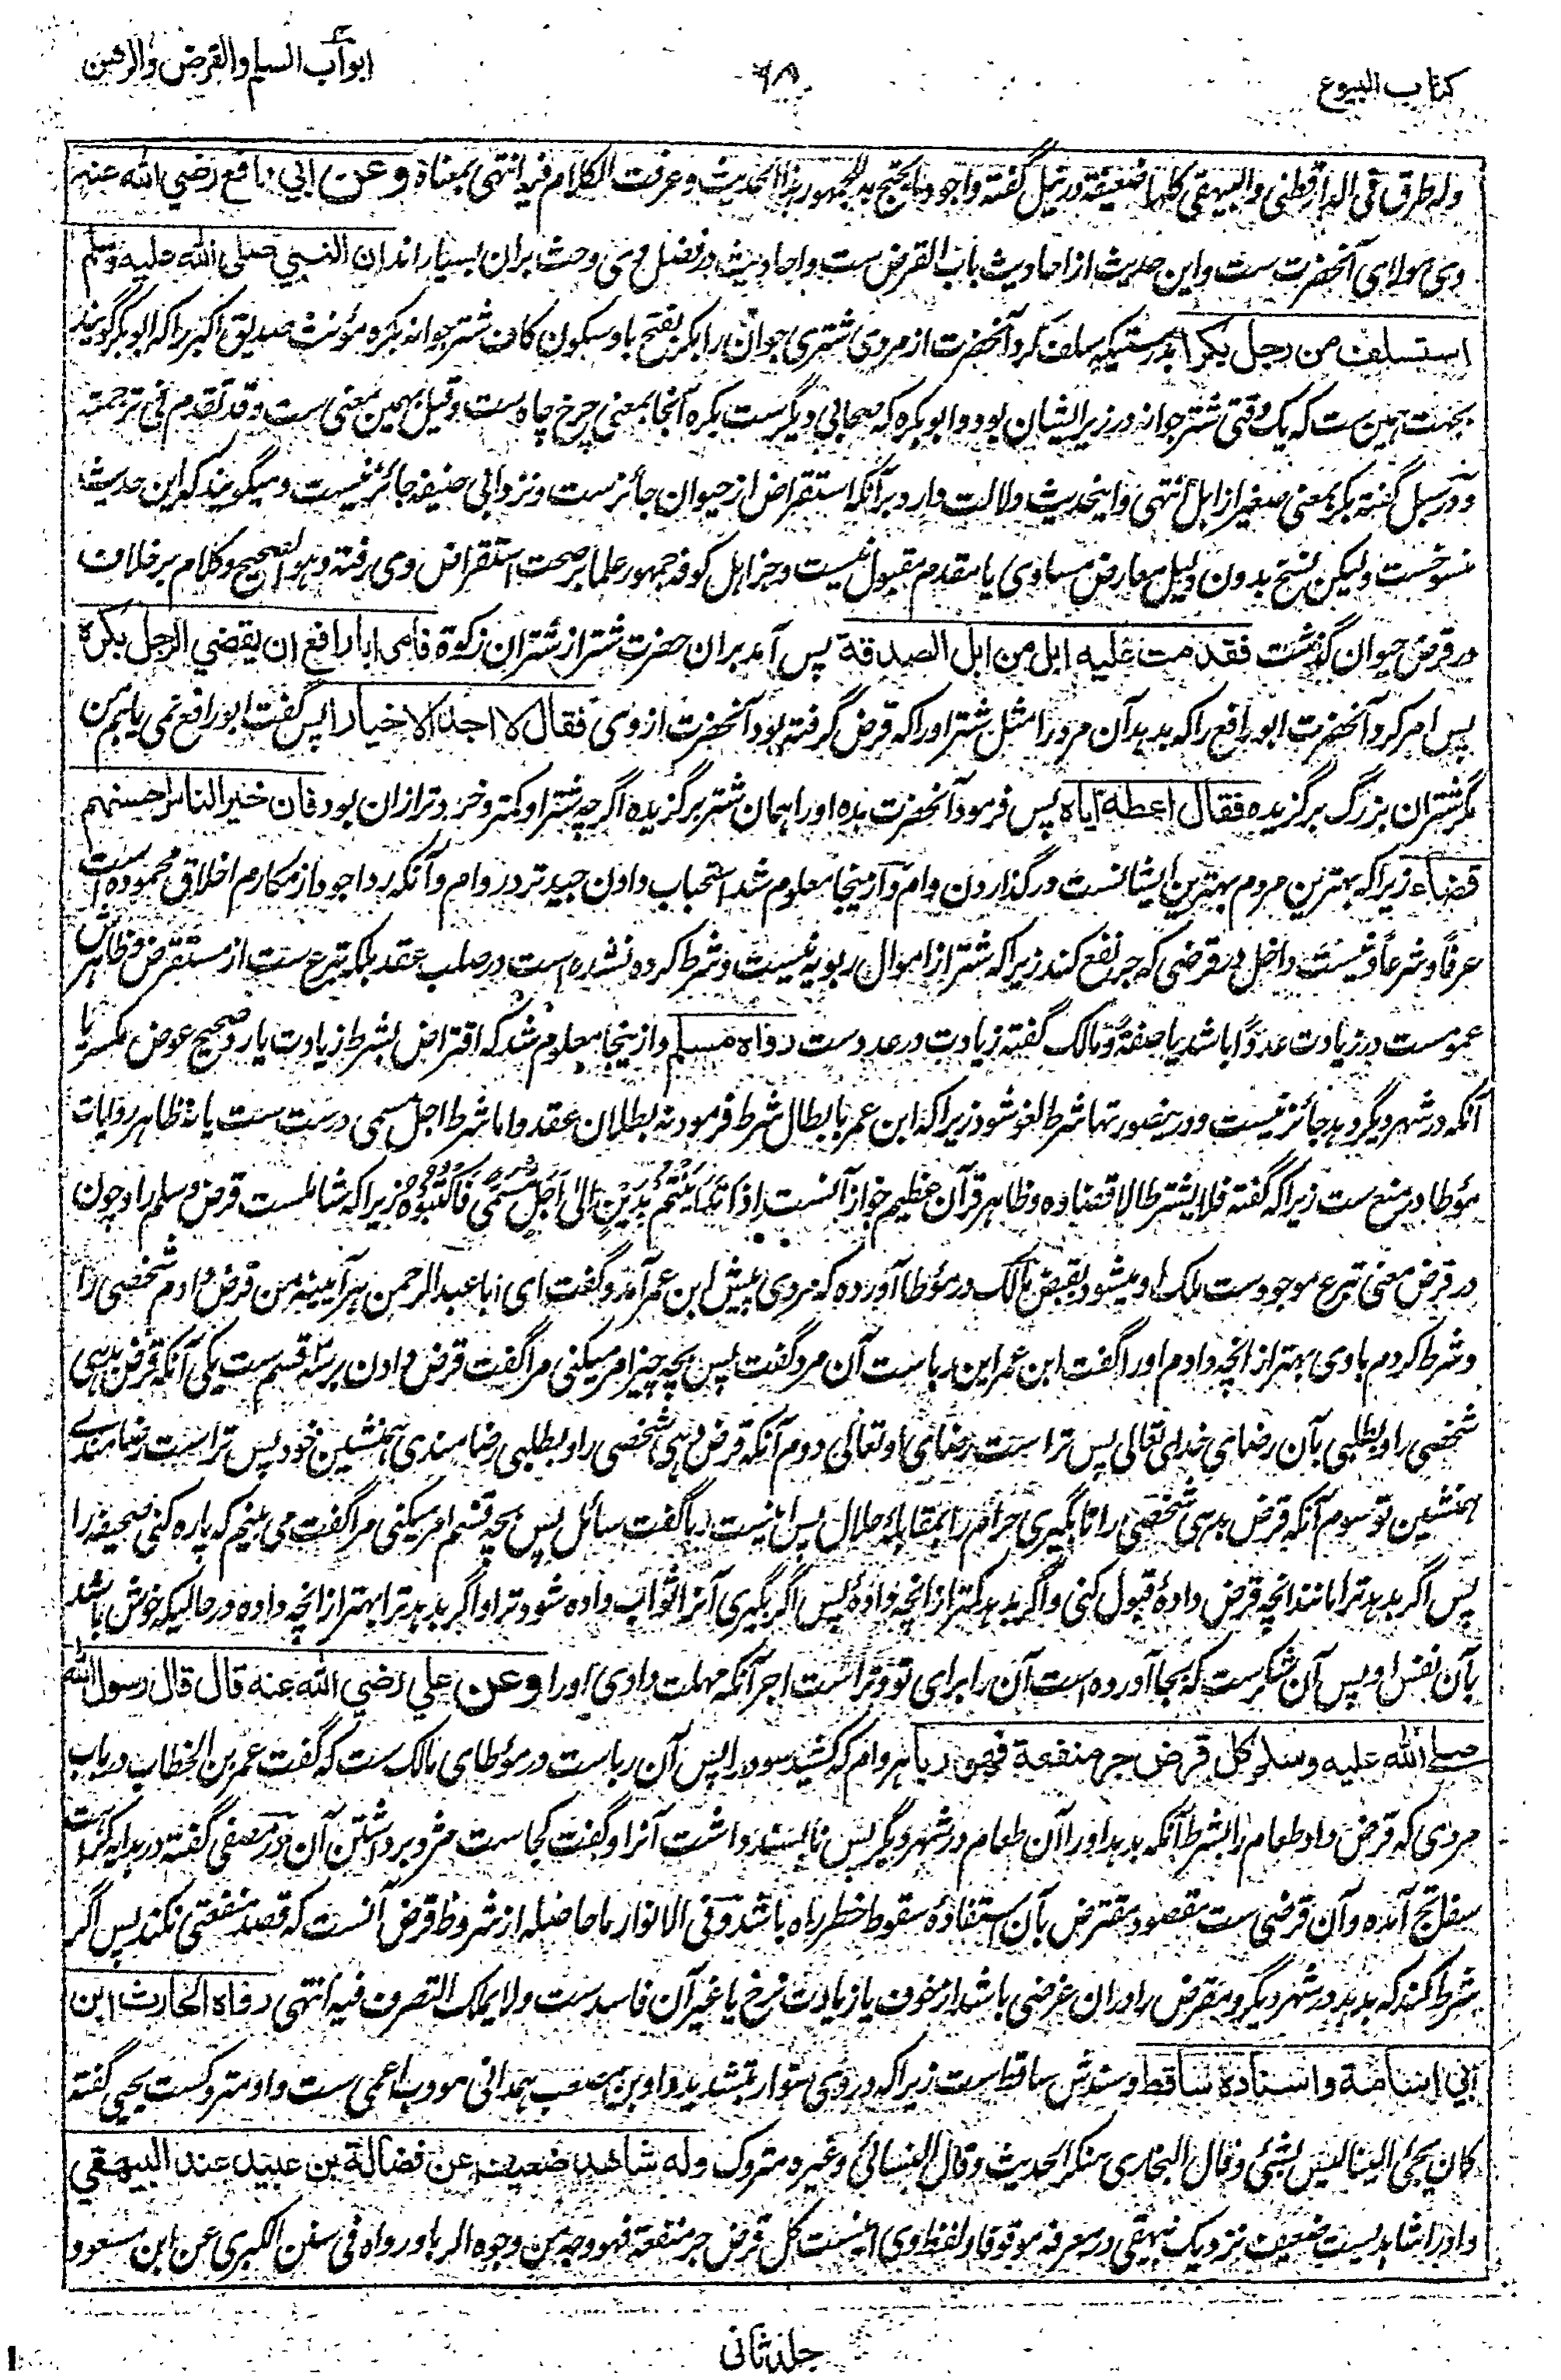 کتاب البیوع
۶۸
ابواب السلم والقرض والرهن
وله طرق فی الدارقطنی والبیهقی کلها ضعیفة ودر نیل گفته واجود ما یحتج به للجمهور هذا الحدیث وعرفت الکلام فیه انتهی بمعناه وعن ابی رافع رضی الله عنه
وی مولای آنحضرت ست واین حدیث از احادیث باب القرض ست واحادیث در فضل وی وحث بران بسیار اند ان النبی صلی الله علیه وسلم
استسلف من رجل بکرا بدرستیکه سلف کرد آنحضرت از مردی شتری جوان را بکر بفتح با وسکون کاف شتر جوانه بکره مؤنث صدیق اکبر را که ابو بکر گویند
بجهت همین ست که یک وقتی شتر جوانه در زیر ایشان بود وابو بکره که صحابی دیگرست بکره آنجا بمعنی چرخ چاه ست وقیل بهمین معنی ست وقد تقدم فی ترجمته
ودر سبل گفته بکر بمعنی صغیر از ابل انتهی واینحدیث دلالت دارد برآنکه استقراض از حیوان جائز ست ونزد ابی حنیفه جائز نیست ومیگویند که این حدیث
منسوخست ولیکن نسخ بدون دلیل معارض مساوی یا مقدم مقبول نیست وجز اهل کوفه جمهور علما بر صحت استقراض وی رفته وهو الصحیح وکلام بر خلاف
در قرض حیوان گذشت فقدمت علیه ابل من ابل الصدقة پس آمد بران حضرت شتر از شتران زکوة فامر ابا رافع ان یقضی الرجل بکره
پس امر کرد آنحضرت ابو رافع را که بدهد آن مرد را مثل شتر او را که قرض گرفته بود آنحضرت از وی فقال لا اجد الا خیارا پس گفت ابو رافع نمی یابم من
مگر شتران بزرگ برگزیده فقال اعطه ایاه پس فرمود آنحضرت بده او را همان شتر برگزیده اگرچه شتر او کمتر وخرد تر ازان بود فان خیر الناس احسنهم
قضاء زیراکه بهترین مردم بهترین ایشانست در گذاردن وام واز ینجا معلوم شد استحباب دادن جید تر در وام وآنکه رد اجود از مکارم اخلاق محموده است
عرفاً وشرعاً ونیست داخل در قرضی که جر نفع کند زیراکه شتر از اموال ربویه نیست وشرط کرده نشده است در صلب عقد بلکه تبرع ست از مستقرض وظاهرش
عموم ست در زیادت عدداً باشد یا صفةً ومالک گفته زیادت در عددست رواه مسلم واز ینجا معلوم شد که اقتراض بشرط زیادت یا رد صحیح عوض مکسر یا
آنکه در شهر دیگر دهد جائز نیست ودرینصورتها شرط لغو شود زیراکه ابن عمر با بطال شرط فرمود نه بطلان عقد واما شرط اجل مسمی درست ست یا نه ظاهر روایات
مؤطا در منع ست زیراکه گفته فلا یشترط الا قضاءه وظاهر قرآن عظیم جواز آنست اِذَا تَدَایَنْتُمْ بِدَیْنٍ اِلٰی اَجَلٍ مُّسَمًّی فَاکْتُبُوْهُ زیراکه شاملست قرض وسلم را وچون
در قرض معنی تبرع موجودست ملک او میشود بقبض مالک در مؤطا آورده که مردی پیش ابن عمر آمد وگفت ای ابا عبد الرحمن هرآیینه من قرض دادم شخصی را
وشرط کردم با وی بهتر از انچه دادم او را گفت ابن عمر این ربا ست آن مرد گفت پس بچه چیز امر میکنی مرا گفت قرض دادن بر سه قسم ست یکی آنکه قرض بدهی
شخصی را وبطلبی بآن رضای خدای تعالی پس تراست رضای او تعالی دوم آنکه قرض دهی شخصی را وبطلبی رضامندی همنشین خود پس تراست رضامندے
همنشین تو سوم آنکه قرض بدهی شخصی را تا بگیری حرام را بمقابلهٔ حلال پس اینست ربا گفت سائل پس بچه قسم امر میکنی مرا گفت می بینم که پاره کنی صحیفه را
پس اگر بدهد ترا مانند انچه قرض دادهٔ قبول کنی واگر بدهد کمتر از انچه دادهٔ پس اگر بگیری آنرا ثواب داده شود ترا واگر بدهد ترا بهتر از انچه داده در حالیکه خوش باشد
بآن نفس او پس آن شکر ست که بجا آورده است آن را برای تو وتراست اجر آنکه مهلت دادی اورا وعن علی رضی الله عنه قال قال رسول الله
صلے الله علیه وسلم کل قرض جر منفعة فهو ربا هر وام که کشید سود را پس آن رباست در مؤطای مالک ست که گفت عمر بن الخطاب در باب
مردی که قرض داد طعام را بشرط آنکه بدهد او را آن طعام در شهر دیگر پس ناپسند داشت آنرا وگفت کجاست مزد برداشتن آن در مصفی گفته در هدایه کراهت
سفاتج آمده وآن قرضی ست مقصود مقترض بآن استفادهٔ سقوط خطر راه باشد وفی الانوار ما حاصله از شروط قرض آنست که قصد منفعتی نکند پس اگر
شرط کند که بدهد در شهر دیگر ومقرض را دران غرضی باشد از خوف یا زیادت نرخ یا غیر آن فاسدست ولا یملک التصرف فیه انتهی رواه الحارث ابن
ابی اسامة واسناده ساقط وسندش ساقط ست زیراکه در وی سوّار بتشدید واو بن مصعب همدانی مودب اعمی ست واو متروکست یحیی گفته
کان یجئ الینا لیس بشئ وقال البخاری منکر الحدیث وقال النسائی وغیره متروک وله شاهد ضعیف عن فضالة بن عبید عند البیهقی
واورا شاهدیست ضعیف نزدیک بیهقی در معرفه موقوفا ولفظ وی اینست کل قرض جر منفعة فهو وجه من وجوه الربا ورواه فی سنن الکبری عن ابن مسعود
جلد ثانی